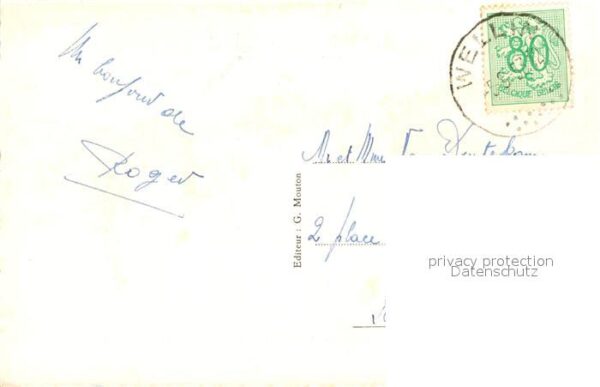 Un bonjour de
Roger
WELLIN
80
C
BELGIQUE BELGIË
Mr et Mme
2 place
Editeur : G. Mouton
privacy protection
Datenschutz